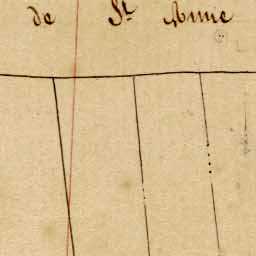 de St Anne